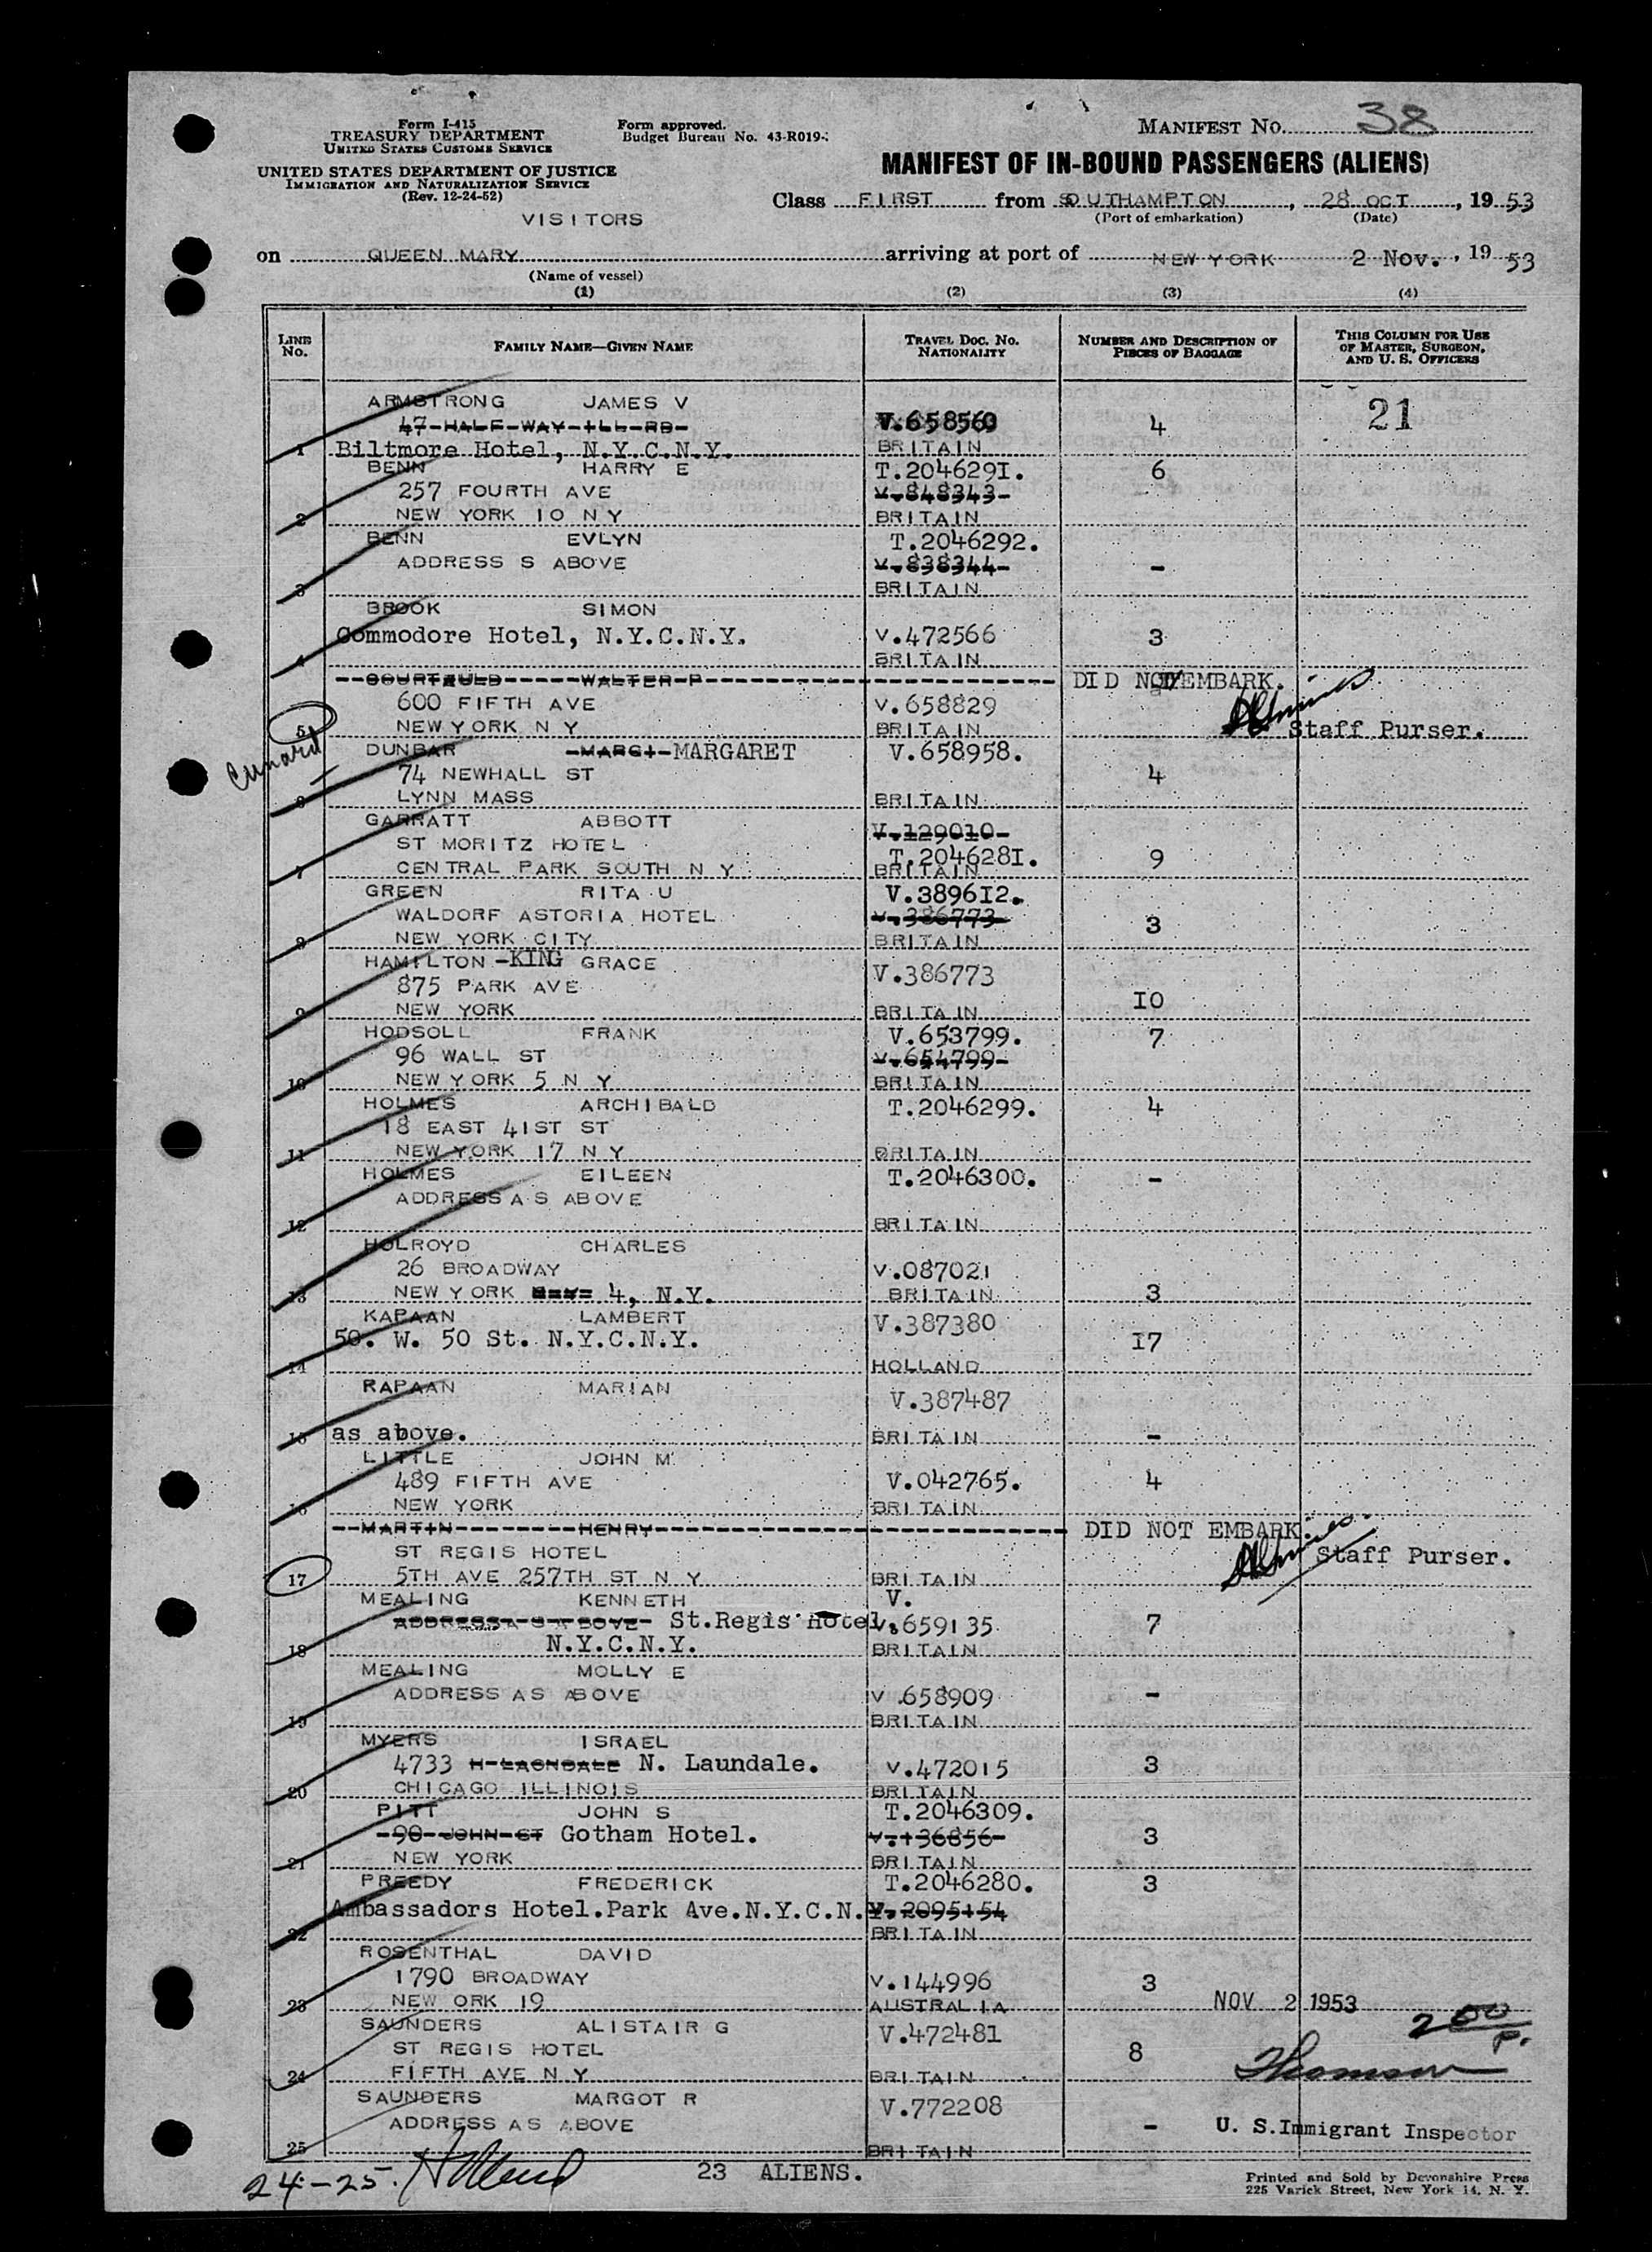 Form I-415
TREASURY DEPARTMENT
UNITED STATES CUSTOMS SERVICE
UNITED STATES DEPARTMENT OF JUSTICE
IMMIGRATION AND NATURALIZATION SERVICE
(Rev. 12-24-52)
Form approved.
Budget Bureau No. 43-R019-
MANIFEST NO. 38
MANIFEST OF IN-BOUND PASSENGERS (ALIENS)
Class FIRST from SOUTHAMPTON, 28 OCT, 1953
(Port of embarkation) (Date)
VISITORS
on QUEEN MARY arriving at port of NEW YORK 2 Nov., 1953
(Name of vessel)
(1) (2) (3) (4)
LINE No. FAMILY NAME—GIVEN NAME TRAVEL DOC. NO. NATIONALITY NUMBER AND DESCRIPTION OF PIECES OF BAGGAGE THIS COLUMN FOR USE OF MASTER, SURGEON, AND U. S. OFFICERS
ARMSTRONG JAMES V
47-HALF-WAY-ILL-RD- V.658560 4 21
1 Biltmore Hotel, N.Y.C.N.Y. BRITAIN
BENN HARRY E T.2046291. 6
257 FOURTH AVE V.848343-
2 NEW YORK 10 N Y BRITAIN
BENN EVLYN T.2046292.
ADDRESS S ABOVE V.838344- -
3 BRITAIN
BROOK SIMON
Commodore Hotel, N.Y.C.N.Y. V.472566 3
4 BRITAIN
--COURTAULD-----WALTER P------ DID NOT EMBARK.
600 FIFTH AVE V.658829
5 NEW YORK N Y BRITAIN Staff Purser.
Cunard
DUNBAR -MARGI-MARGARET V.658958.
74 NEWHALL ST 4
6 LYNN MASS BRITAIN
GARRATT ABBOTT V.129010-
ST MORITZ HOTEL T.2046281. 9
7 CENTRAL PARK SOUTH N Y BRITAIN
GREEN RITA U V.389612.
WALDORF ASTORIA HOTEL V.386773- 3
8 NEW YORK CITY BRITAIN
HAMILTON -KING GRACE V.386773
875 PARK AVE 10
9 NEW YORK BRITAIN
HODSOLL FRANK V.653799. 7
96 WALL ST V.654799-
10 NEW YORK 5 N Y BRITAIN
HOLMES ARCHIBALD T.2046299. 4
18 EAST 41ST ST
11 NEW YORK 17 N Y BRITAIN
HOLMES EILEEN T.2046300. -
ADDRESS A S ABOVE
12 BRITAIN
HOLROYD CHARLES
26 BROADWAY V.087021
13 NEW YORK 4, N.Y. BRITAIN 3
KAPAAN LAMBERT V.387380
50. W. 50 St. N.Y.C.N.Y. 17
14 HOLLAND
RAPAAN MARIAN V.387487
15 as above. BRITAIN -
LITTLE JOHN M
489 FIFTH AVE V.042765. 4
16 NEW YORK BRITAIN
--MARTIN---------HENRY------ DID NOT EMBARK.
ST REGIS HOTEL Staff Purser.
17 5TH AVE 257TH ST N Y BRITAIN
MEALING KENNETH V.
ADDRESS A S A BOVE- St.Regis Hotel V.659135 7
18 N.Y.C.N.Y. BRITAIN
MEALING MOLLY E
ADDRESS AS ABOVE V.658909 -
19 BRITAIN
MYERS ISRAEL
4733 N LAGNDALE N. Laundale. V.472015 3
20 CHICAGO ILLINOIS BRITAIN
PITT JOHN S T.2046309.
-90-JOHN-ST Gotham Hotel. V.136856- 3
21 NEW YORK BRITAIN
PREEDY FREDERICK T.2046280. 3
Ambassadors Hotel.Park Ave.N.Y.C.N.Y. 2095154
22 BRITAIN
ROSENTHAL DAVID
1790 BROADWAY V.144996 3
23 NEW ORK 19 AUSTRALIA NOV 2 1953
SAUNDERS ALISTAIR G V.472481 2 00 P.
ST REGIS HOTEL 8
24 FIFTH AVE N Y BRITAIN Thomson
SAUNDERS MARGOT R V.772208
ADDRESS AS ABOVE - U. S.Immigrant Inspector
25 BRITAIN
24-25. 23 ALIENS.
Printed and Sold by Devonshire Press
225 Varick Street, New York 14, N. Y.